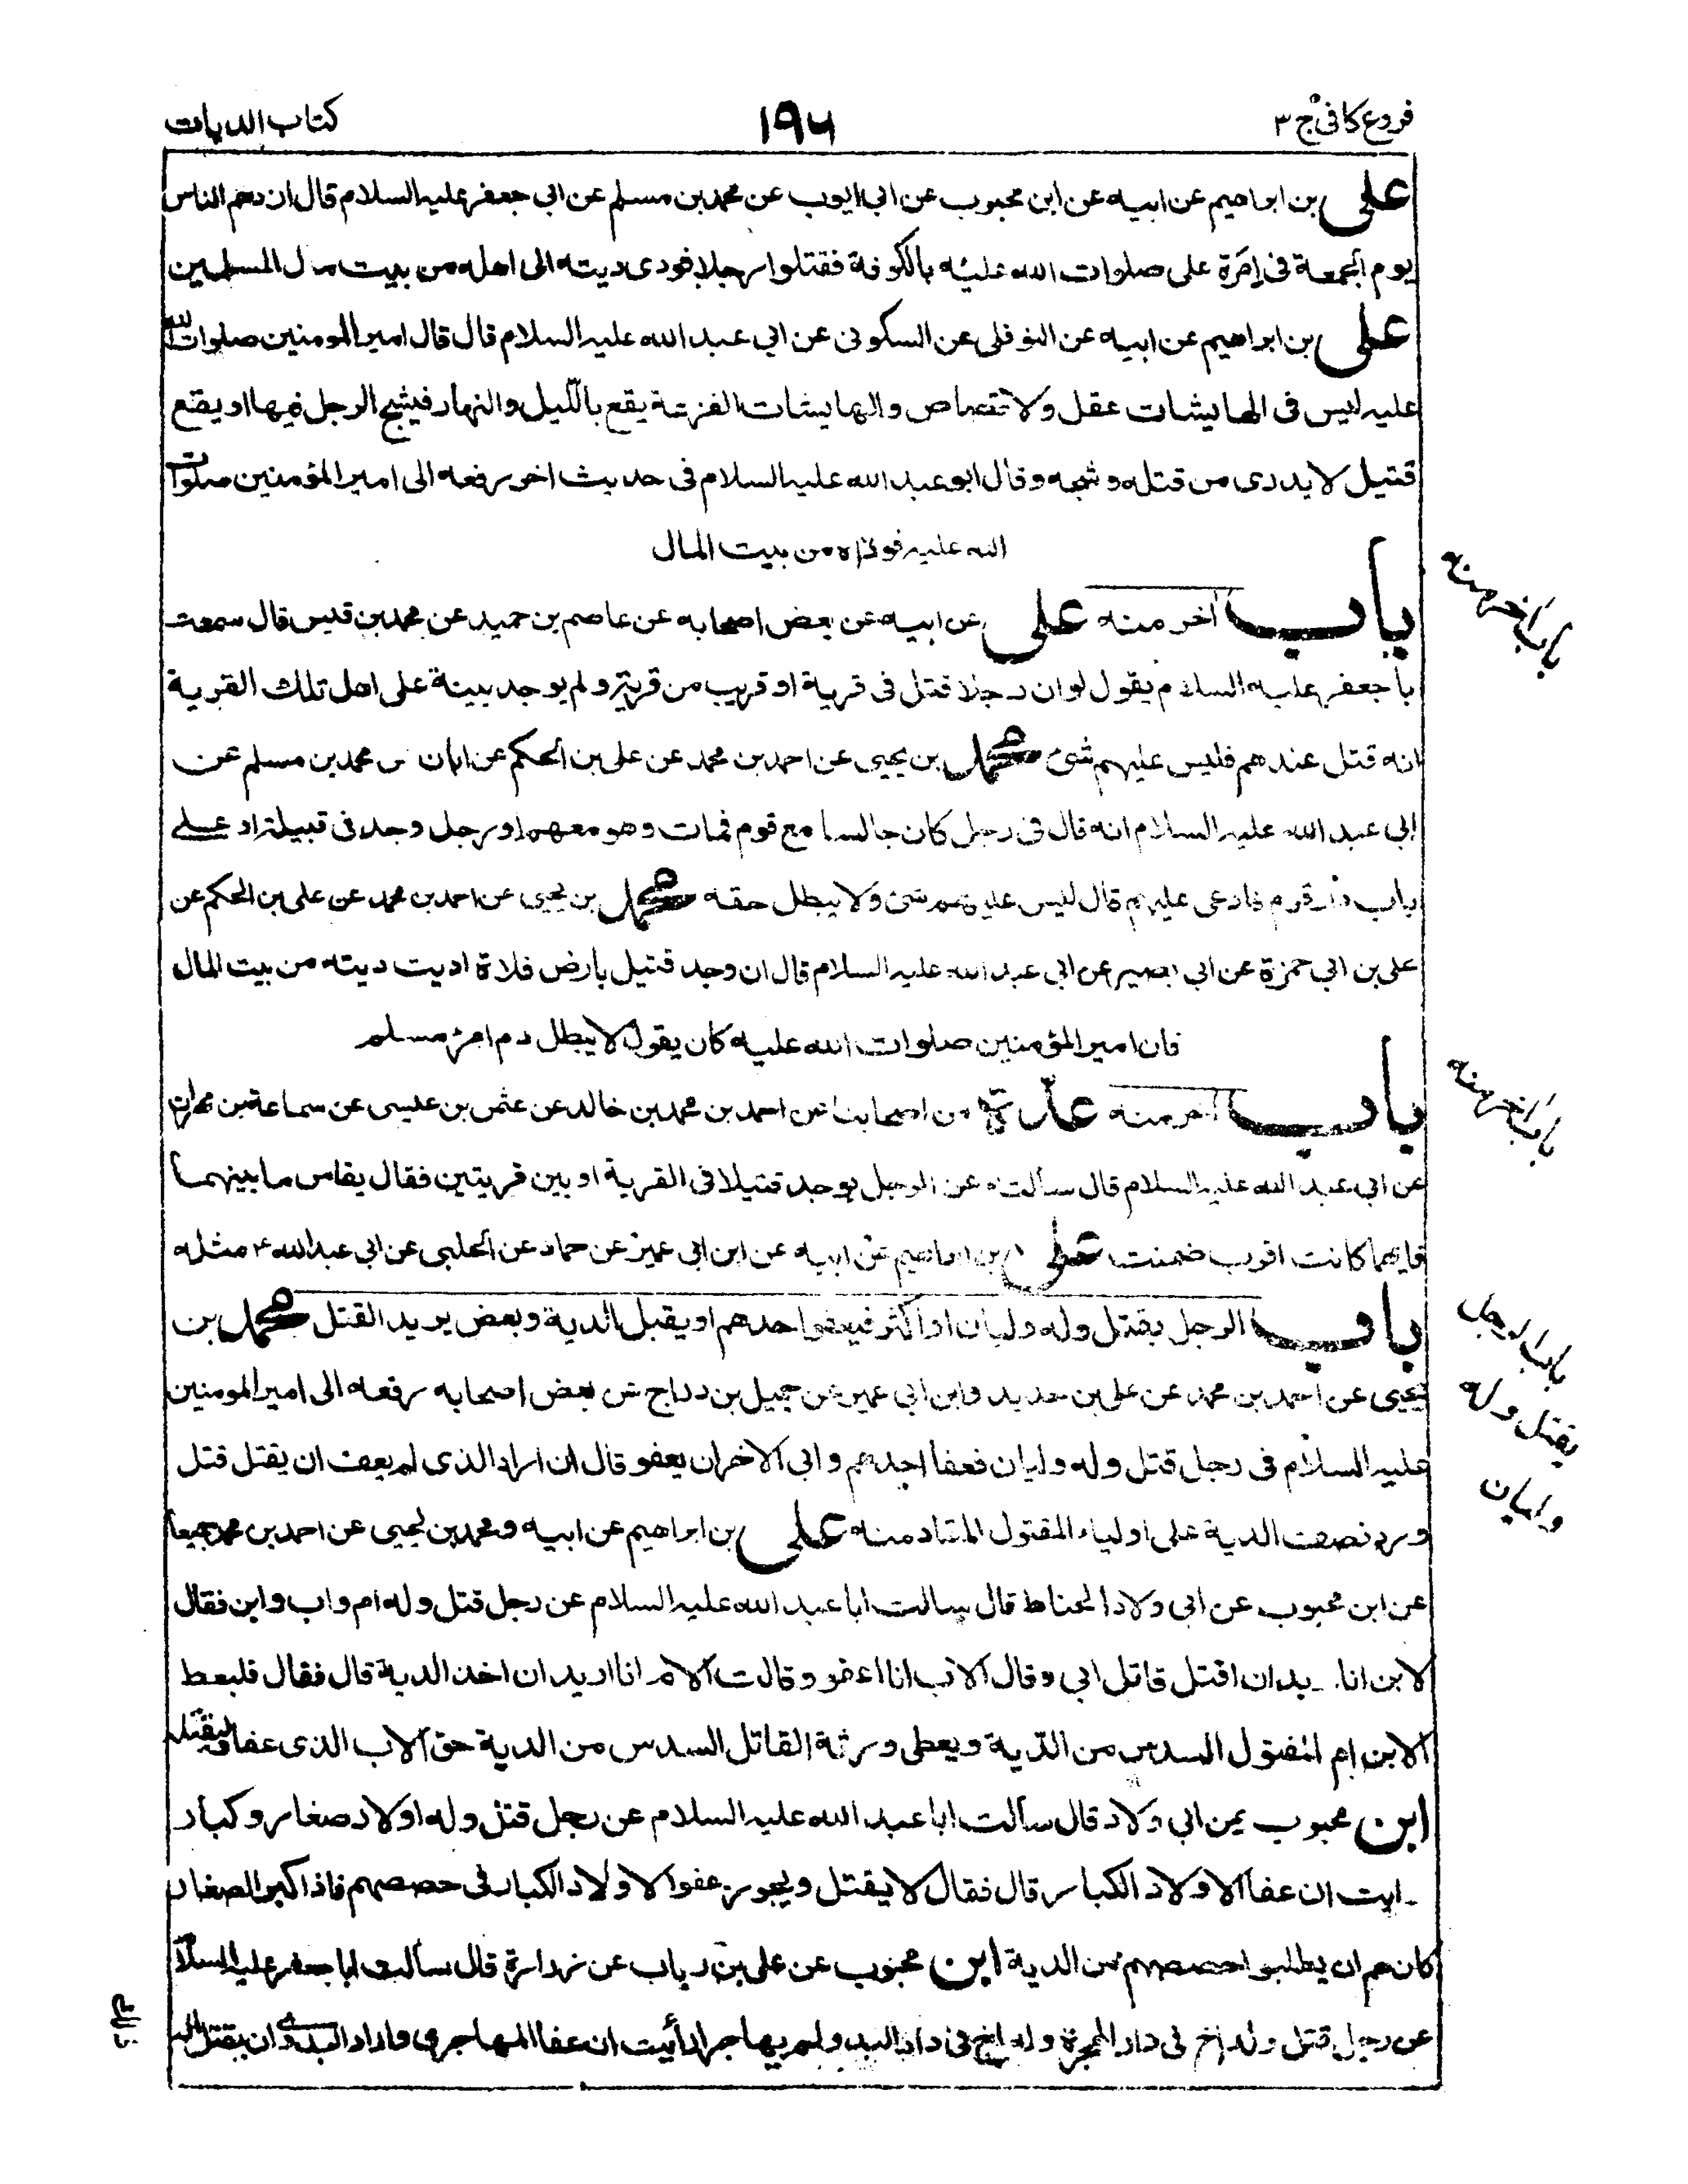 فروع كافى ج ٣
١٩٦
كتاب الديات
على بن ابراهيم عن ابيه عن ابن محبوب عن ابى ايوب عن محمد بن مسلم عن ابى جعفر عليه السلام قال ازدحم الناس
يوم الجمعة فى اِمَرة على صلوات الله عليه بالكوفة فقتلوا رجلا فودى ديته الى اهله من بيت مال المسلمين
على بن ابراهيم عن ابيه عن النوفلى عن السكونى عن ابى عبد الله عليه السلام قال قال امير المومنين صلوات الله
عليه ليس فى الهايشات عقل ولا قصاص والهايشات الفزعة يقع بالليل والنهار فيشج الرجل فيها او يقع
قتيل لا يدرى من قتله وشجه وقال ابو عبد الله عليه السلام فى حديث اخر رفعه الى امير المؤمنين صلوات
الله عليه فوداه من بيت المال
باب اخر منه على عن ابيه عن بعض اصحابه عن عاصم بن حميد عن محمد بن قيس قال سمعت
با جعفر عليه السلام يقول لو ان رجلا قتل فى قرية او قريب من قرية ولم يوجد بينة على اهل تلك القرية
انه قتل عندهم فليس عليهم شئ محمد بن يحيى عن احمد بن محمد عن على بن الحكم عن ابان عن محمد بن مسلم عن
ابى عبد الله عليه السلام انه قال فى رجل كان جالسا مع قوم فمات وهو معهم او رجل وجد فى قبيلة او على
باب دار قوم فادعى عليهم قال ليس عليهم شئ ولا يبطل حقه محمد بن يحيى عن احمد بن محمد عن على بن الحكم عن
على بن ابى حمزة عن ابى بصير عن ابى عبد الله عليه السلام قال ان وجد قتيل بارض فلاة اديت ديته من بيت المال
فان امير المؤمنين صلوات الله عليه كان يقول لا يبطل دم امرئ مسلم
باب اخر منه عدّة من اصحابنا عن احمد بن محمد بن خالد عن عثمن بن عيسى عن سماعة بن مهران
عن ابى عبد الله عليه السلام قال سالته عن الرجل يوجد قتيلا فى القرية او بين قريتين فقال يقاس ما بينهما
فايهما كانت اقرب ضمنت على بن ابراهيم عن ابيه عن ابن ابى عمير عن حماد عن الحلبى عن ابى عبد الله ع مثله
باب الرجل يقتل وله وليان او اكثر فيعفو احدهم او يقبل الدية وبعض يريد القتل محمد بن
يحيى عن احمد بن محمد عن على بن حديد وابن ابى عمير عن جميل بن دراج عن بعض اصحابه رفعه الى امير المومنين
عليه السلام فى رجل قتل وله وليان فعفا احدهم وابى الاخر ان يعفو قال ان اراد الذى لم يعف ان يقتل قتل
ورد نصف الدية على اولياء المقتول المقاد منه على بن ابراهيم عن ابيه ومحمد بن يحيى عن احمد بن محمد جميعا
عن ابن محبوب عن ابى ولاد الحناط قال سالت ابا عبد الله عليه السلام عن رجل قتل وله ام واب وابن فقال
لابن انا يد ان اقتل قاتل ابى وقال الاب انا اعفو وقالت الام انا اريد ان اخذ الدية قال فقال فليعط
الابن ام المقتول السدس من الدّية ويعطى ورثة القاتل السدس من الدية حق الاب الذى عفا وليقتله
ابن محبوب عن ابى ولاد قال سالت ابا عبد الله عليه السلام عن رجل قتل وله اولاد صغار وكبار
رايت ان عفا الاولاد الكبار قال فقال لا يقتل ويجوز عفوا الاولاد الكبار فى حصصهم فاذا كبر الصغار
كان هم ان يطلبوا حصصهم من الدية ابن محبوب عن على بن رباب عن زرارة قال سالت ابا جعفر عليه السلام
عن رجل قتل وله اخ فى دار الهجرة وله اخ فى دار البدو ولم يهاجر ارأيت ان عفا المهاجرى واراد البدوى ان يقتل اله
باب اخر منه
باب اخر منه
باب الرجل
يقتل وله
وليان
ذلك